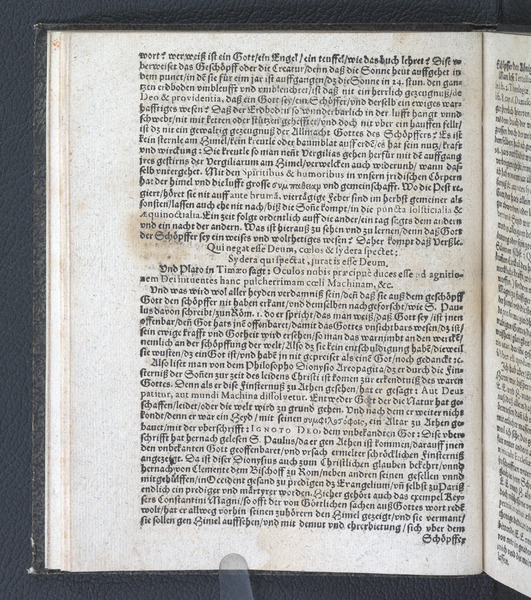 wort? wer weiß ist ein Gott/ein Engel/ein teuffel/wie das buch lehret? Dise
berweiset das Geschöpff oder die Creatur/denn daß die Sonne heut auffgehet in
dem punct/in dẽ sie für eim jar ist auffgangen/dz die Sonne in 24. stun. den gan
tzen erdboden vmbleufft vnd vmbleuchtet/ist daß nit ein herrlich gezeugnuß/de
Deo & prouidentia, daß ein Gott sey/ein Schöpfer/vnd derselb ein ewiges war
hafftiges wesen? Daß der Erdboden so wunderbarlich in der lufft hangt vnnd
schwebt/nit mit ketten oder stützen gehefftet/vnd doch nit vber ein hauffen felle/
ist dz nit ein gewaltig gezeugnuß der Allmacht Gottes des Schöpffers? Es ist
kein sternle am Himel/kein kreutle oder baumblat auff erdẽ/es hat sein nutz/krafft
vnd wirckung: Die kreutle so man neñt Vergilias gehen herfür mit dẽ auffgang
jres gestirns der Vergiliarum am Himel/verwelcken auch widerumb/wann daß
selb vntergehet. Mit den Spiritibus & humoribus in vnsern jrdischen Cörpern
hat der himel vnd die lufft grosse συμπάθειαν vnd gemeinschafft. Wo die Pest re
giert/höret sie nit auff ante brumã. viertägige Feber sind im herbst gemeiner als
sonsten/lassen auch ehe nit nach/biß die Soñe kompt/in die puncta solsticialia &
Æquinoctialia. Ein zeit folgt ordentlich auff die ander/ein tag segts dem andern
vnd ein nacht der andern. Was ist hierauß zu sehen vnd zu lernen/denn daß Gott
der Schöpffer sey ein weises vnd wolthetiges wesen? Daher kompt daß Verßle.
Qui negat esse Deum, cœlos & sydera spectet;
Sydera qui spectat, jurat is esse Deum.
Vnd Plato in Timæo sagt: Oculos nobis præcipuè duces esse ad agnitio-
nem Dei intuentes hanc pulcherrimam cœli Machinam, &c.
Vnd was wird wol aller heyden verdamniß sein/deñ daß sie auß dem geschöpff
Gott den schöpffer nit haben erkant/vnd demselben nachgeforscht/wie S. Pau-
lus davon schreibt/zun Röm. 1. do er spricht/das man weiß/daß Gott sey/ist jnen
offenbar/deñ Got hats jnẽ offenbaret/damit das Gottes vnsichtbars wesen/dz ist/
sein ewige krafft vnd Gotheit wird ersehen/so man das warnimbt an den wercken/
nemlich an der schöpffung der welt/Also dz sie kein entschuldigung habẽ/dieweil
sie wusten/dz ein Got ist/vnd habẽ jn nit gepreiset als eine Got/noch gedanckt ꝛc.
Also list man von dem Philosopho Dionysio Areopagita/dz er durch die Fin-
sterniß der Soñen zur zeit des leidens Christi ist komen zur erkendtniß des waren
Gottes. Denn als er dise Finsternuß zu Athen gesehen/hat er gesagt: Aut Deus
patitur, aut mundi Machina dissolvetur. Entweder Gott der die Natur hat ge-
schaffen/leidet/oder die welt wird zu grund gehen. Vnd nach dem er weiter nichts
kondt/denn er war ein Heyd/mit seinen συμφιλοσόφοις, ein Altar zu Athen ge
bauet/mit der vberschrifft: IGNOTO DEO. dem vnbekandten Got: Dise vber-
schrifft hat hernach gelesen S. Paulus/da er gen Athen ist kommen/darauff jnen
den vnbekanten Gott geoffenbaret/vnd vrsach ermelter schröcklichen Finsterniß
angezeigt. Da ist diser Dionysius auch zum Christlichen glauben bekehrt/vnnd
hernach von Clemente dem Bischoff zu Rom/neben andern seinen gesellen vnnd
mitgehülffen/in Occident gesand zu predigen dz Evangelium/vñ selbst zu Pariß
endlich ein prediger vnd märtyrer worden. Hieher gehört auch das exempel Key-
sers Constantini Magni/so offt der von Göttlichen sachen auß Gottes wort redẽ
wolt/hat er allweg vorhin seinen zuhörern den Himel gezeiget/vnd sie vermant/
sie sollen gen Himel auffsehen/vnd mit demut vnd ehrerbietung/sich vber dem
Schöpffer